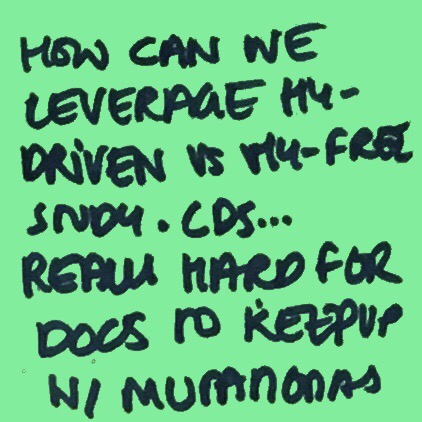 HOW CAN WE
LEVERAGE HY-
DRIVEN VS HY-FREE
STUDY. CDS...
REALLY HARD FOR
DOCS TO KEEP UP
W/ MUTATIONS